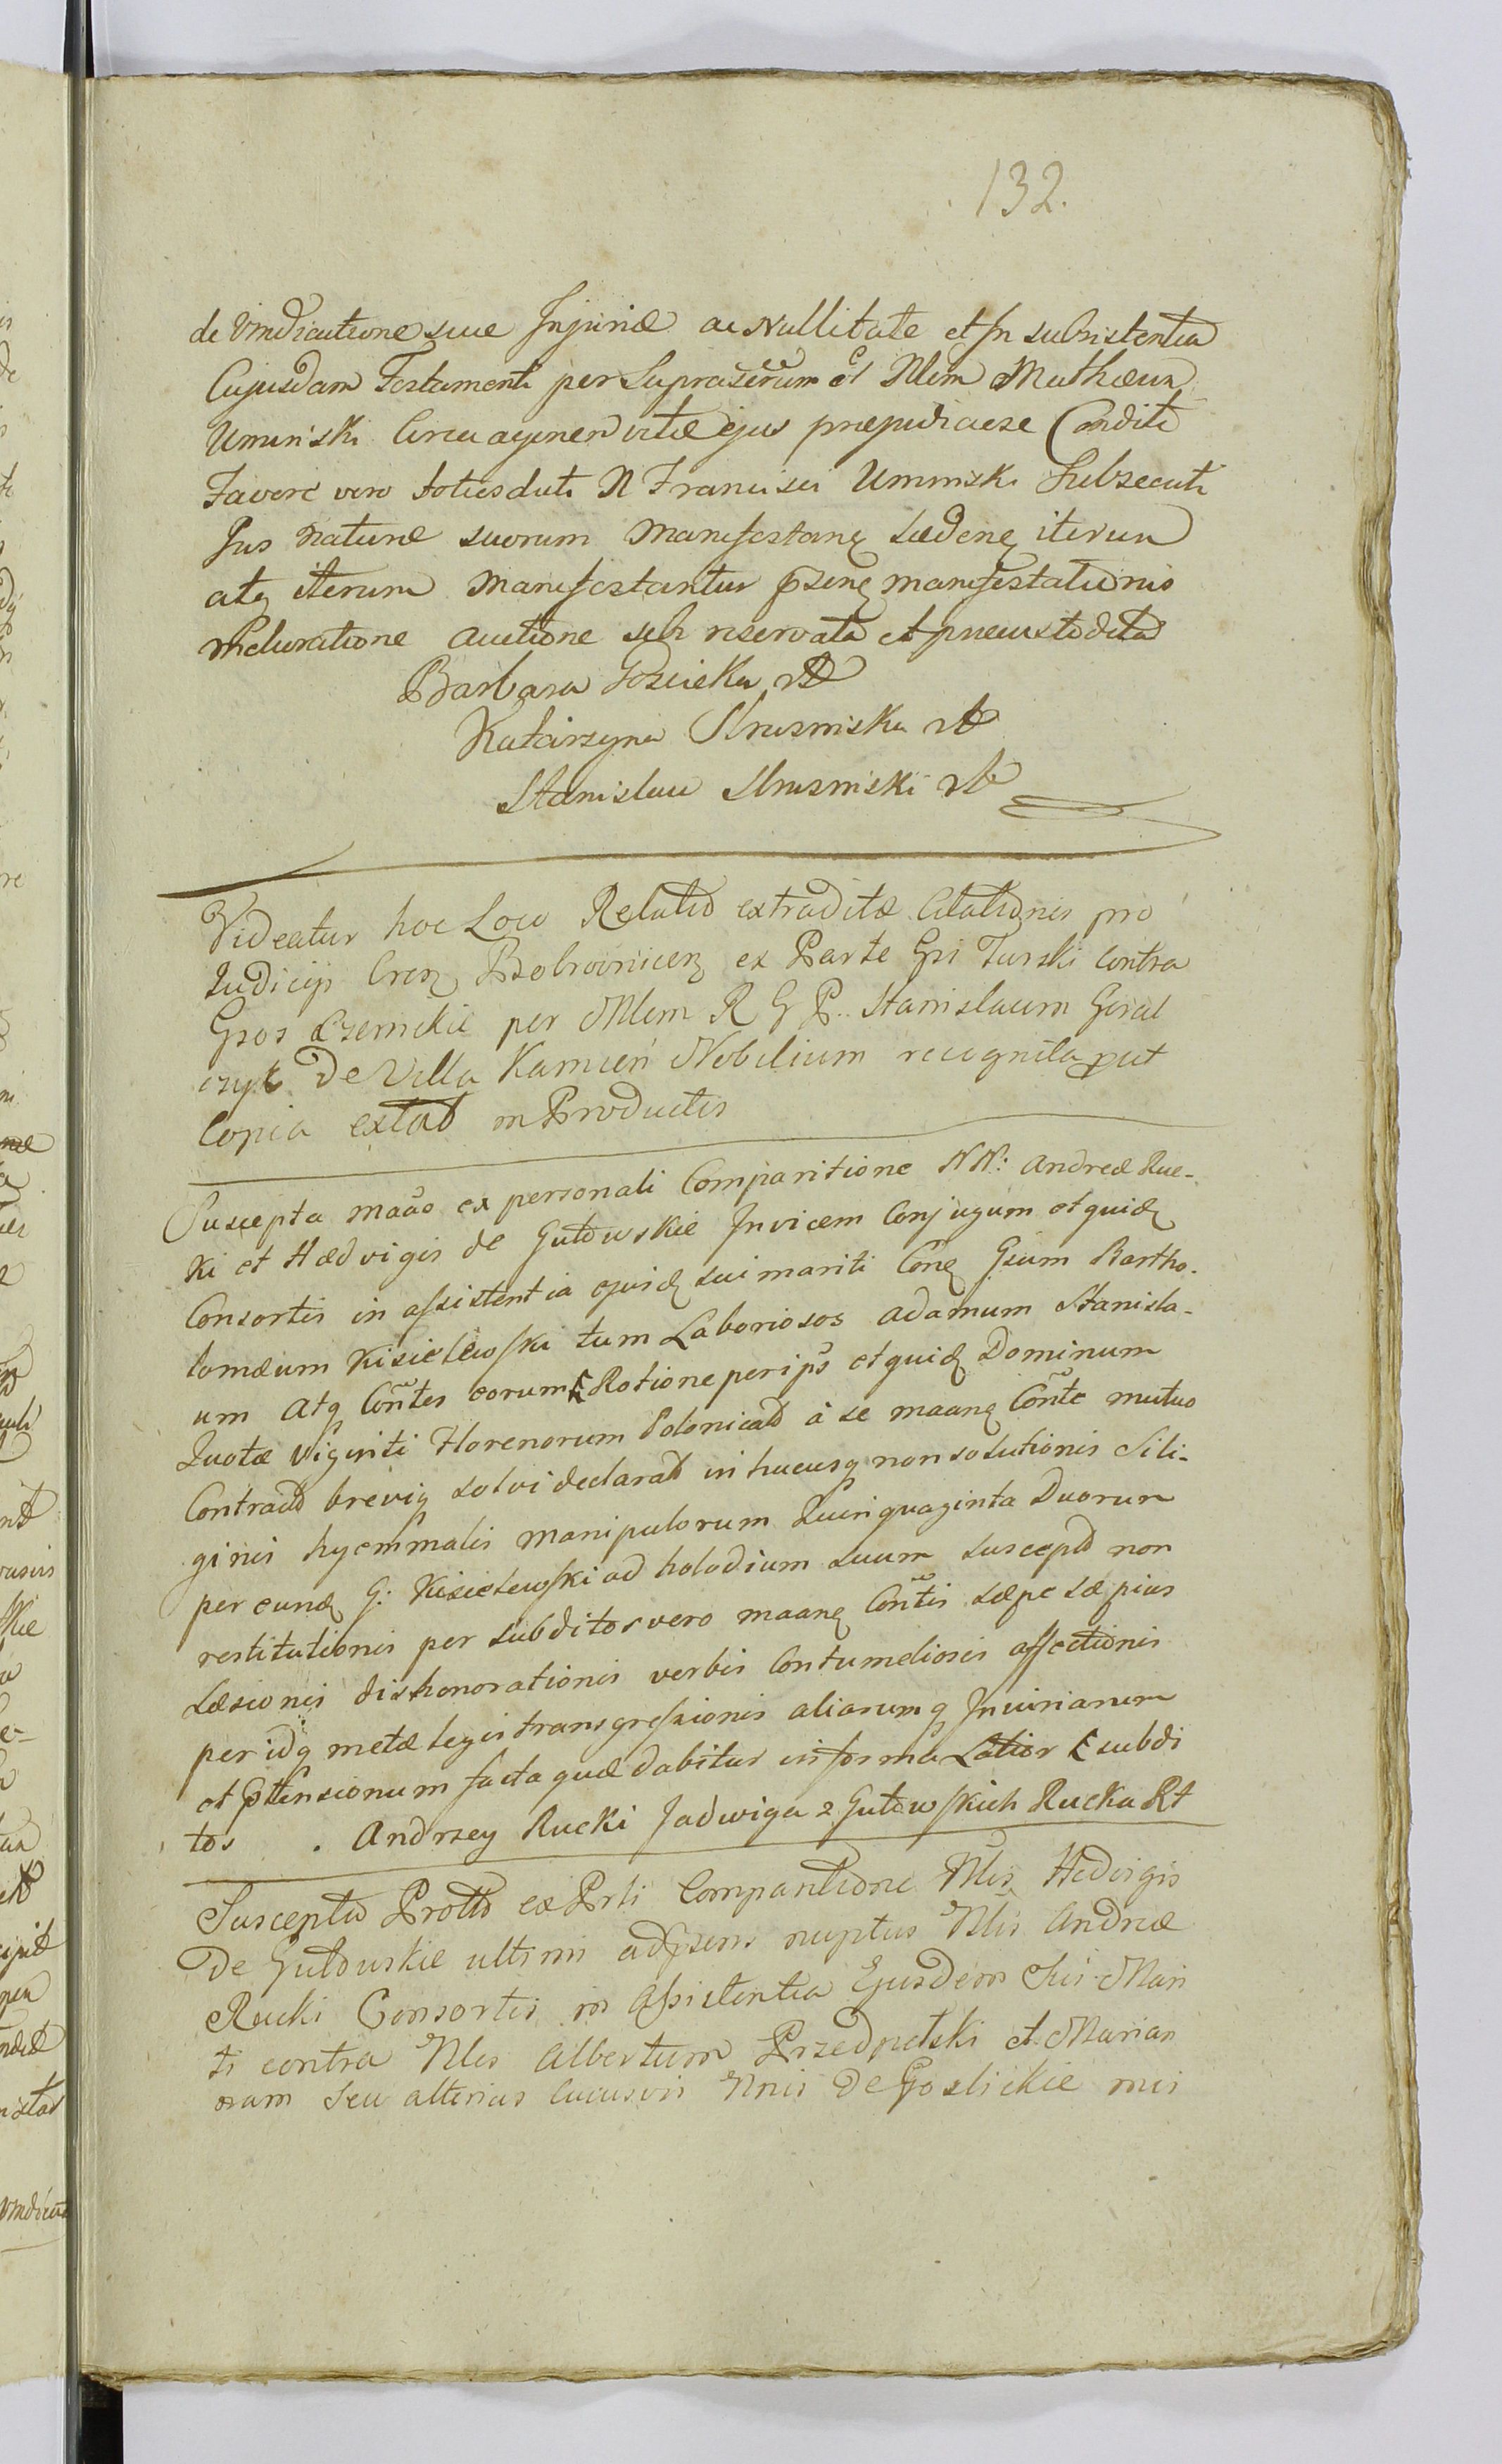 132.
de Vindicatione suae Injuriae ac Nullitate et In subsistentia
Cujusdam Testamenti per Supra et Nlem Mathæum
Uminski Circa agonen vitæ ejus præjudiciose Conditi
Favore vero toties duti N Francisci Uminski Subsecuti
Jus naturæ suorum Manifestanq lædenq iterum
atq iterum Manifestantur pszenq manifestationis
melioratione auctione sibi reservata et præcustodita
Barbara Joscicka
Katarzyna Skrusniska
Stanislaw Skrusniski
Videatur hoc Loco Relatio extraditæ Citationis pro
Judicijs Crcn Bobrownicen ex Parte Gsi Turski contra
Gsos Czemskie per Mlem R G P. Stanislaum Goral
czyk De Villa Kamień Nobilium recognita put
Copia extat in Productis
Suscepta maão ex personali Comparitione NN: Andreæ Ruc-
ki et Hædvigis de Gutowskie Invicem Conjugum et quid
Consortis in assistentia ejusd sui mariti Conq Gsum Bartho-
lomæum Kisielewski tum Laboriosos Adamum Stanisla-
um Atq Contes eorum Ratione per ips et quid Dominum
Quotæ Viginti Florenorum Polonical à se maanq Conte mutuo
Contract brevig solvi declarat in hucusq non solutionis Sili-
ginis hyemmalis manipulorum Quinquaginta Duorum
per eund G: Kisielewski ad holodium suum suscept non
restitutionis per subditos vero maanq Contis sæpe sæpius
Læsionis dishonorationis verbis Contumeliosis affectionis
per idq metæ legis transgressionis aliarumq Injuriarum
et Ptensionum facta quæ dabitur in forma Latior subdi
tos . Andrzey Rucki Jadwiga z Gutowskich Rucka Rt
Suscepta Protto ex Prli Comparitione Nlis Hedvigis
De Gutowskie ultimi adpsens nuptus Nlis Andreæ
Rucki Consortis in assistentia Ejusdem Sui Mari
ti contra Nles Albertum Przedpelski et Marian
nam seu alterius cujusvis Nnis De Goslickie mis